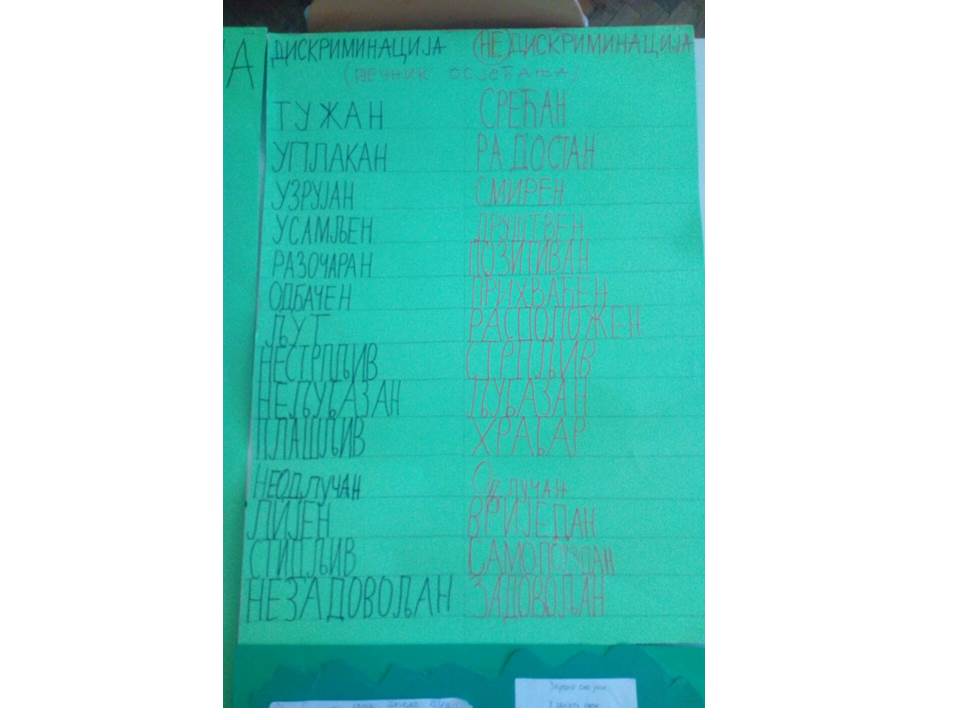 А
ДИСКРИМИНАЦИЈА (НЕ)ДИСКРИМИНАЦИЈА
(РЕЧНИК ОСЈЕЋАЊА)
ТУЖАН СРЕЋАН
УПЛАКАН РАДОСТАН
УЗРУЈАН СМИРЕН
УСАМЉЕН ДРУШТВЕН
РАЗОЧАРАН ПОЗИТИВАН
ОДБАЧЕН ПРИХВАЋЕН
ЉУТ РАСПОЛОЖЕН
НЕСТРПЉИВ СТРПЉИВ
НЕЉУБАЗАН ЉУБАЗАН
ПЛАШЉИВ ХРАБАР
НЕОДЛУЧАН ОДЛУЧАН
ЛИЈЕН ВРИЈЕДАН
СТИДЉИВ
НЕЗАДОВОЉАН ЗАДОВОЉАН